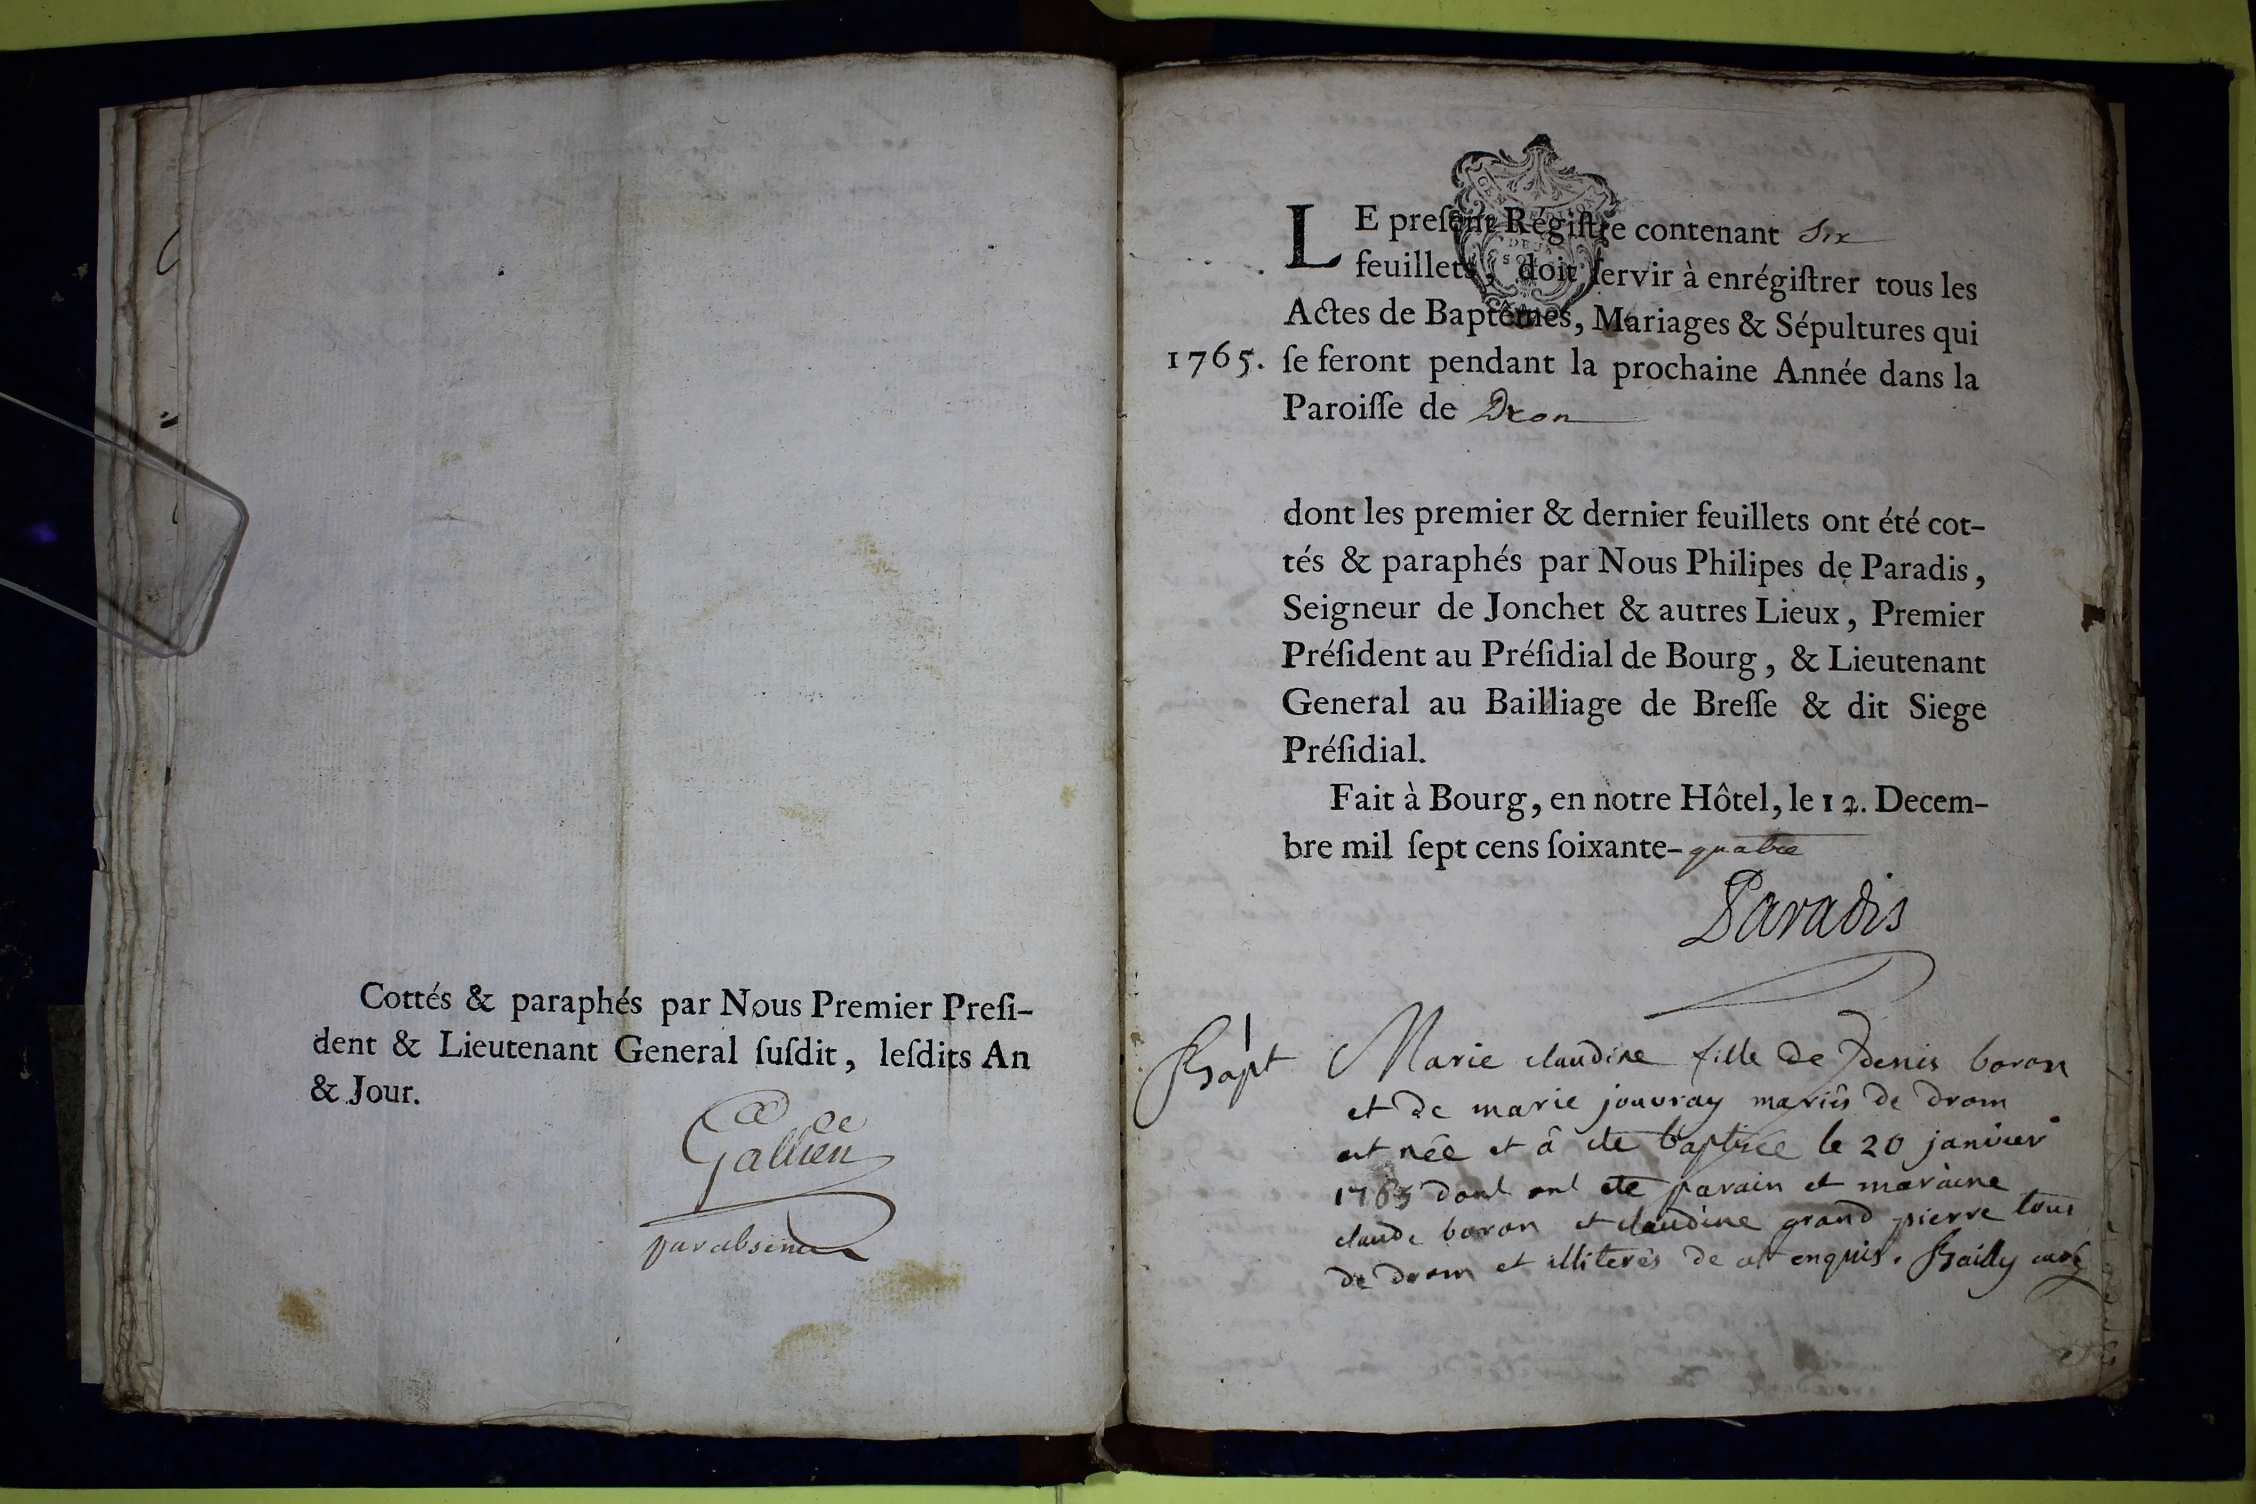 Cottés & paraphés par Nous Premier Preſi-
dent & Lieutenant General ſuſdit, leſdits An
& Jour.
Gallien
par absence
LE preſent Régiſtre contenant Six
feuillets, doit ſervir à enrégiſtrer tous les
Actes de Baptêmes, Mariages & Sépultures qui
1765. ſe feront pendant la prochaine Année dans la
Paroiſſe de Dron
dont les premier & dernier feuillets ont été cot-
tés & paraphés par Nous Philipes de Paradis,
Seigneur de Jonchet & autres Lieux, Premier
Préſident au Préſidial de Bourg, & Lieutenant
General au Bailliage de Breſſe & dit Siege
Préſidial.
Fait à Bourg, en notre Hôtel, le 12. Decem-
bre mil ſept cens ſoixante-quatre
Paradis
Bapt Marie claudine fille de denis boron
et de marie jouvray mariés de drom
est née et â ete baptisée le 20 janvier
1765 dont ont ete parain et maraine
claude boron et claudine grand pierre tous
de drom et illiterés de ce enquis. Bailly curé